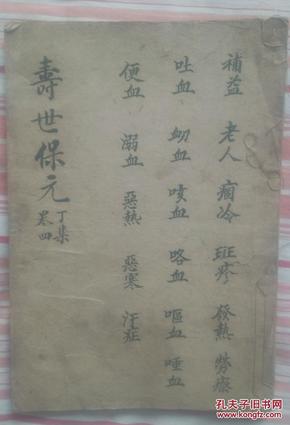 補益 老人 痼冷 斑疹 發熱 勞瘵
吐血 衂血 咳血 咯血 嘔血 唾血
便血 溺血 惡熱 惡寒 汗症
壽世保元 丁集
卷四
孔夫子旧书网